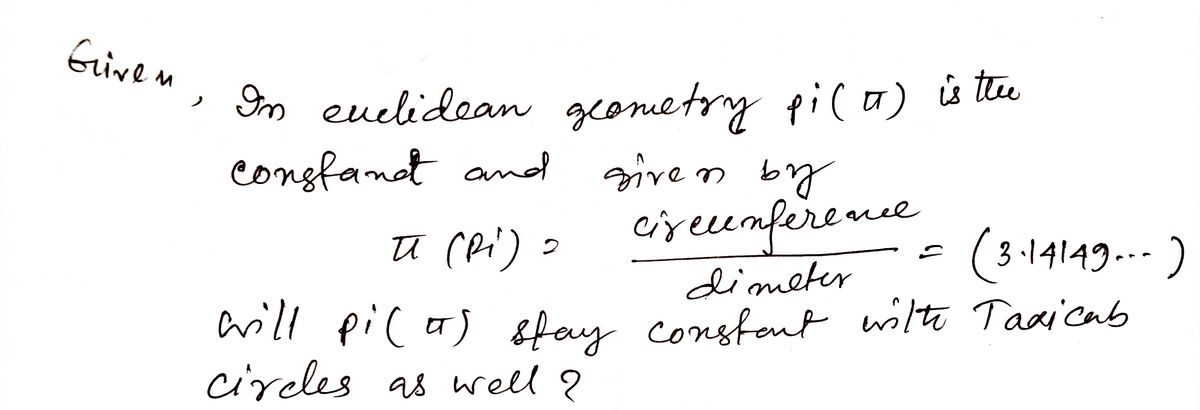 Given,
In euclidean geometry pi(π) is the
constant and given by
π (Pi) = circumference / dimeter = (3.14149...)
will pi(π) stay constant with Taxicab
circles as well?